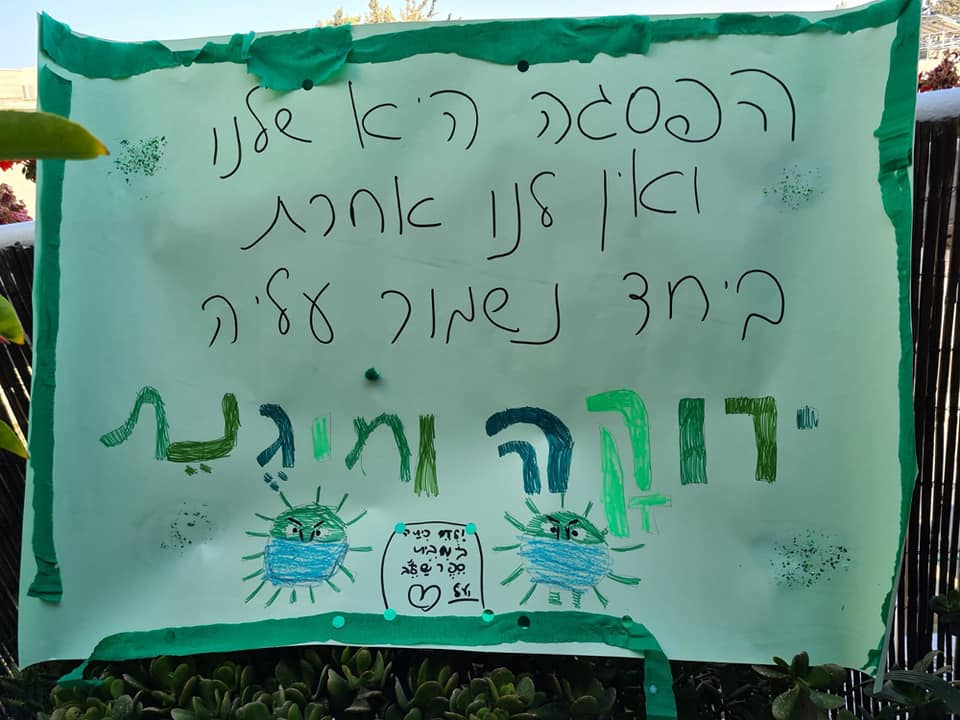 הפסגה היא שלנו
ואין לנו אחרת
ביחד נשמור עליה
ירוקה ומיגנת